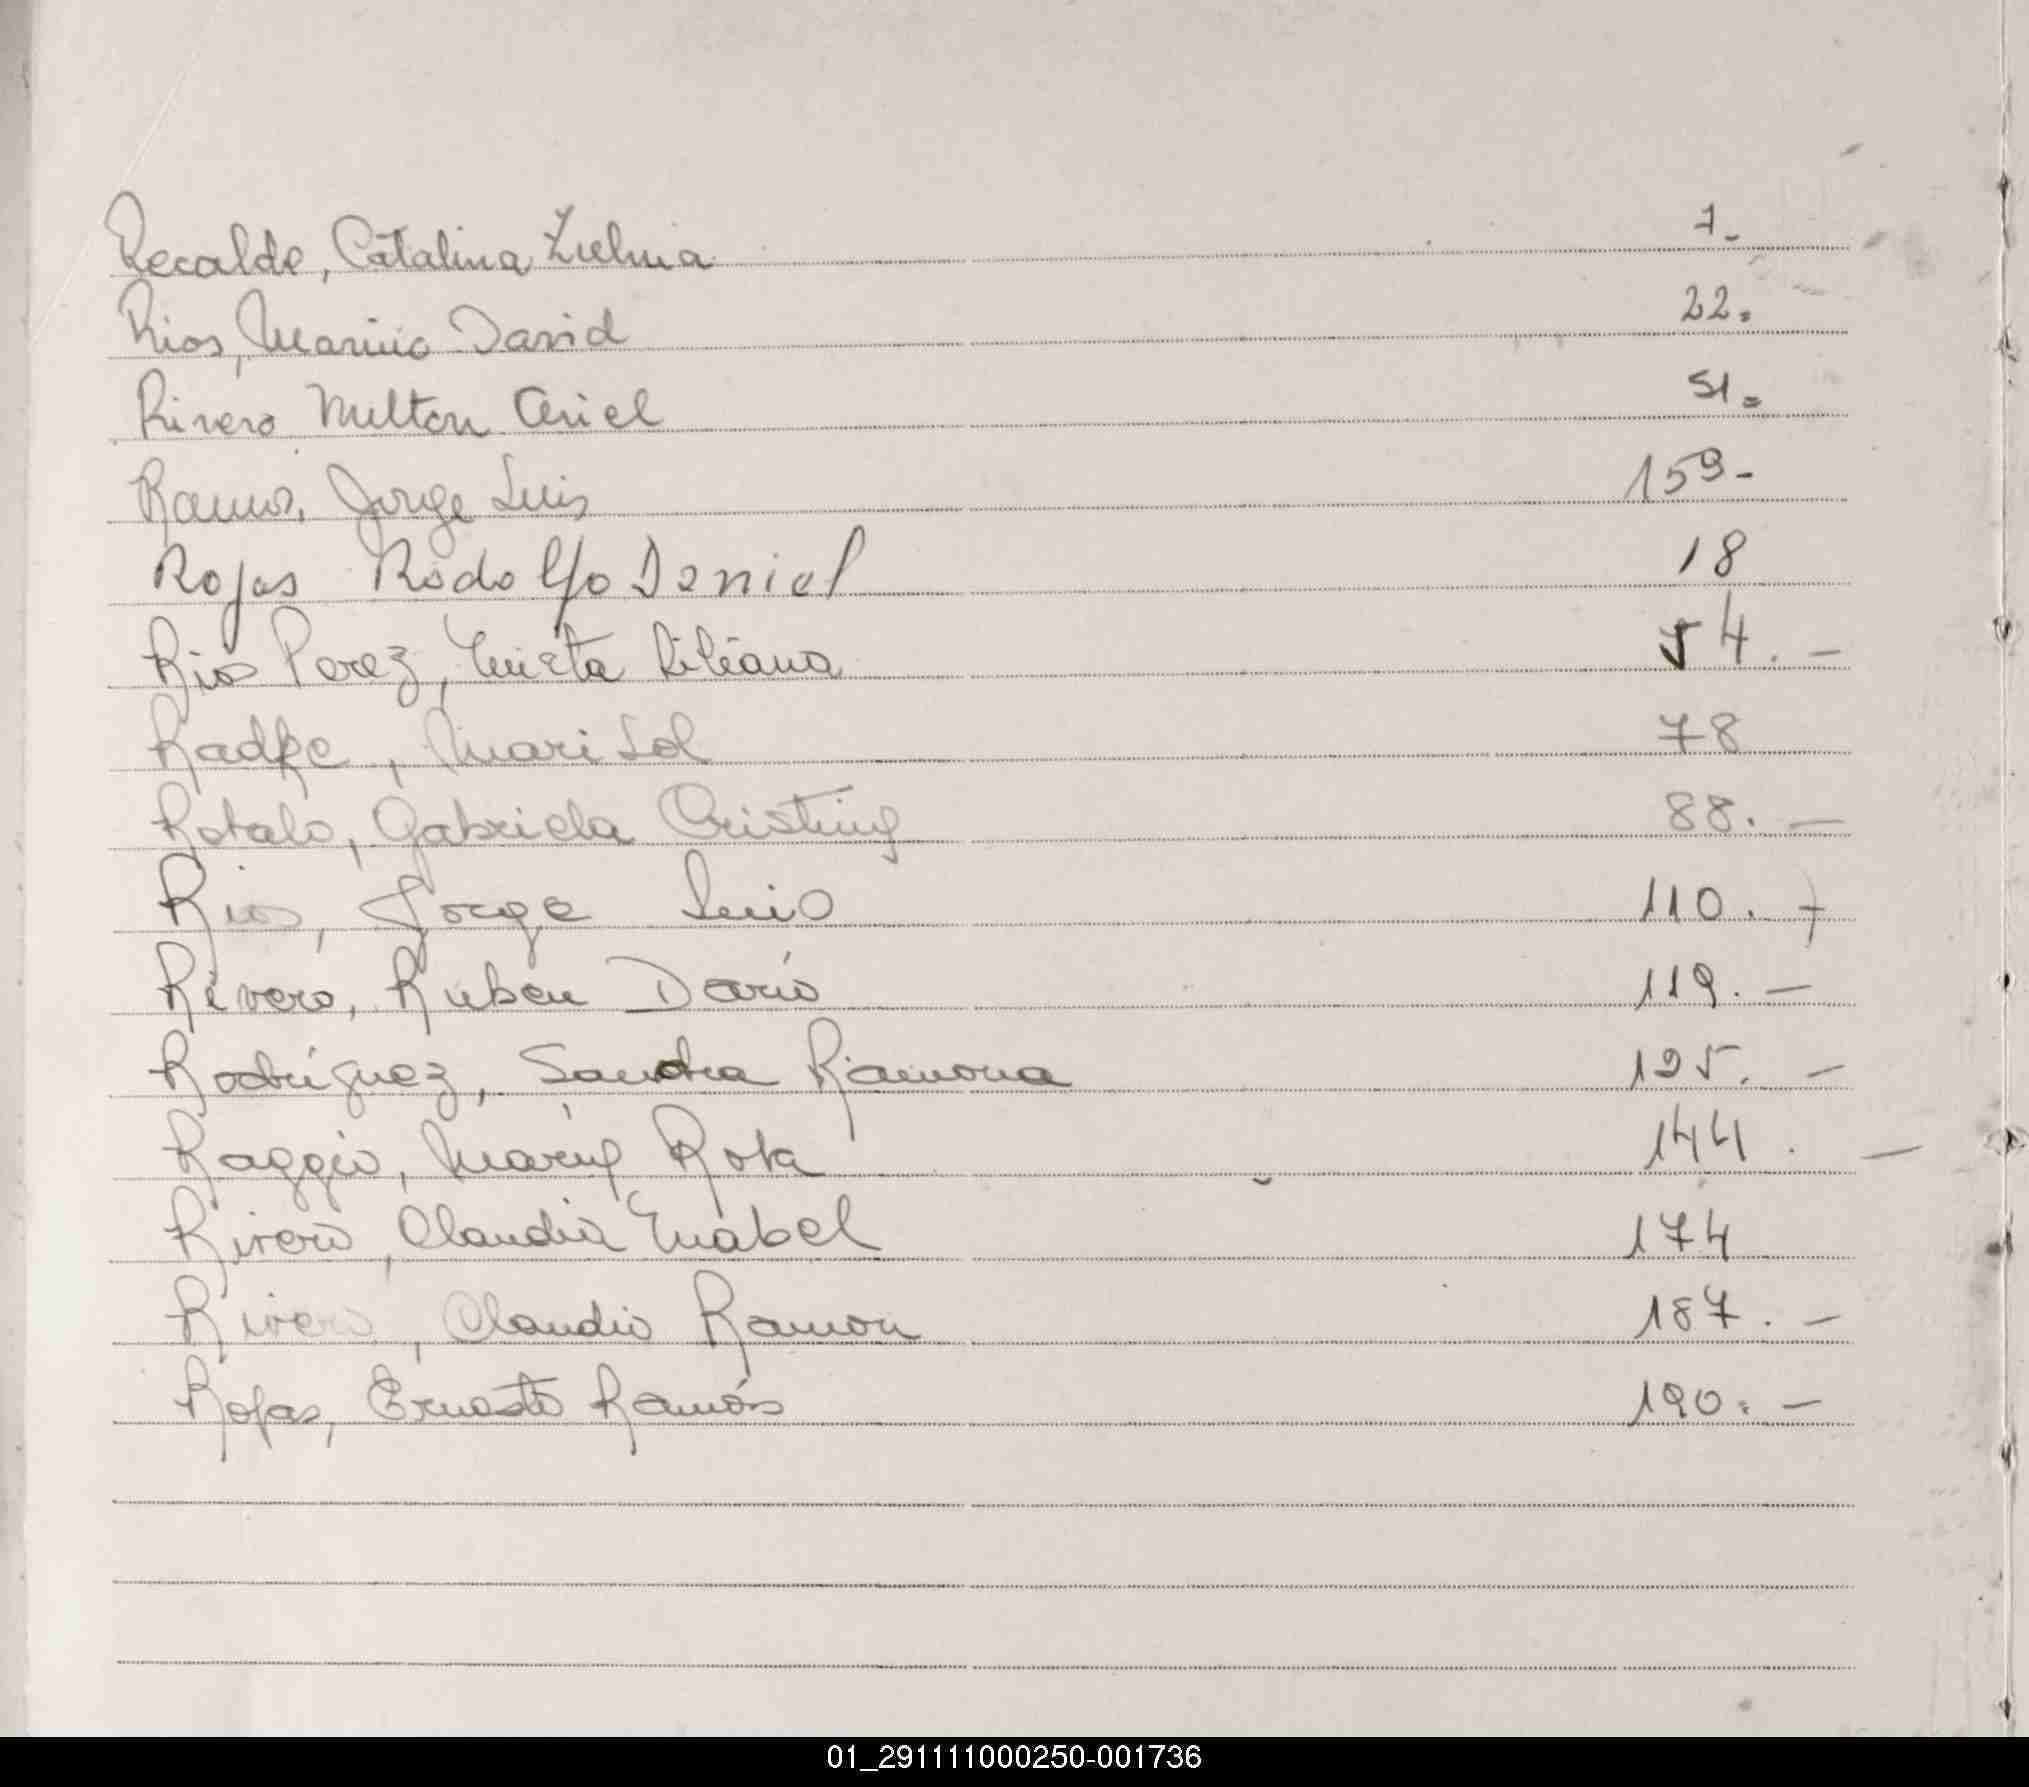 Recalde, Catalina Zulma 7.-
Rios, Marino David 22.
Rivero Milton Ariel 51.
Ramos, Jorge Luis 159-
Rojas Rodolfo Daniel 18
Rios Perez, Liliana 54. -
Radke, Mari Sol 78
Rotalo, Gabriela Cristina 88. -
Rios, Jorge Luis 110. -
Rivero, Ruben Darío 119. -
Rodríguez, Sandra Ramona 125. -
Raggio, María Rosa 144. -
Rivero, Claudia Mabel 174
Rivero, Claudio Ramon 187. -
Rojas, Ernesto Ramón 190. -
01_291111000250-001736